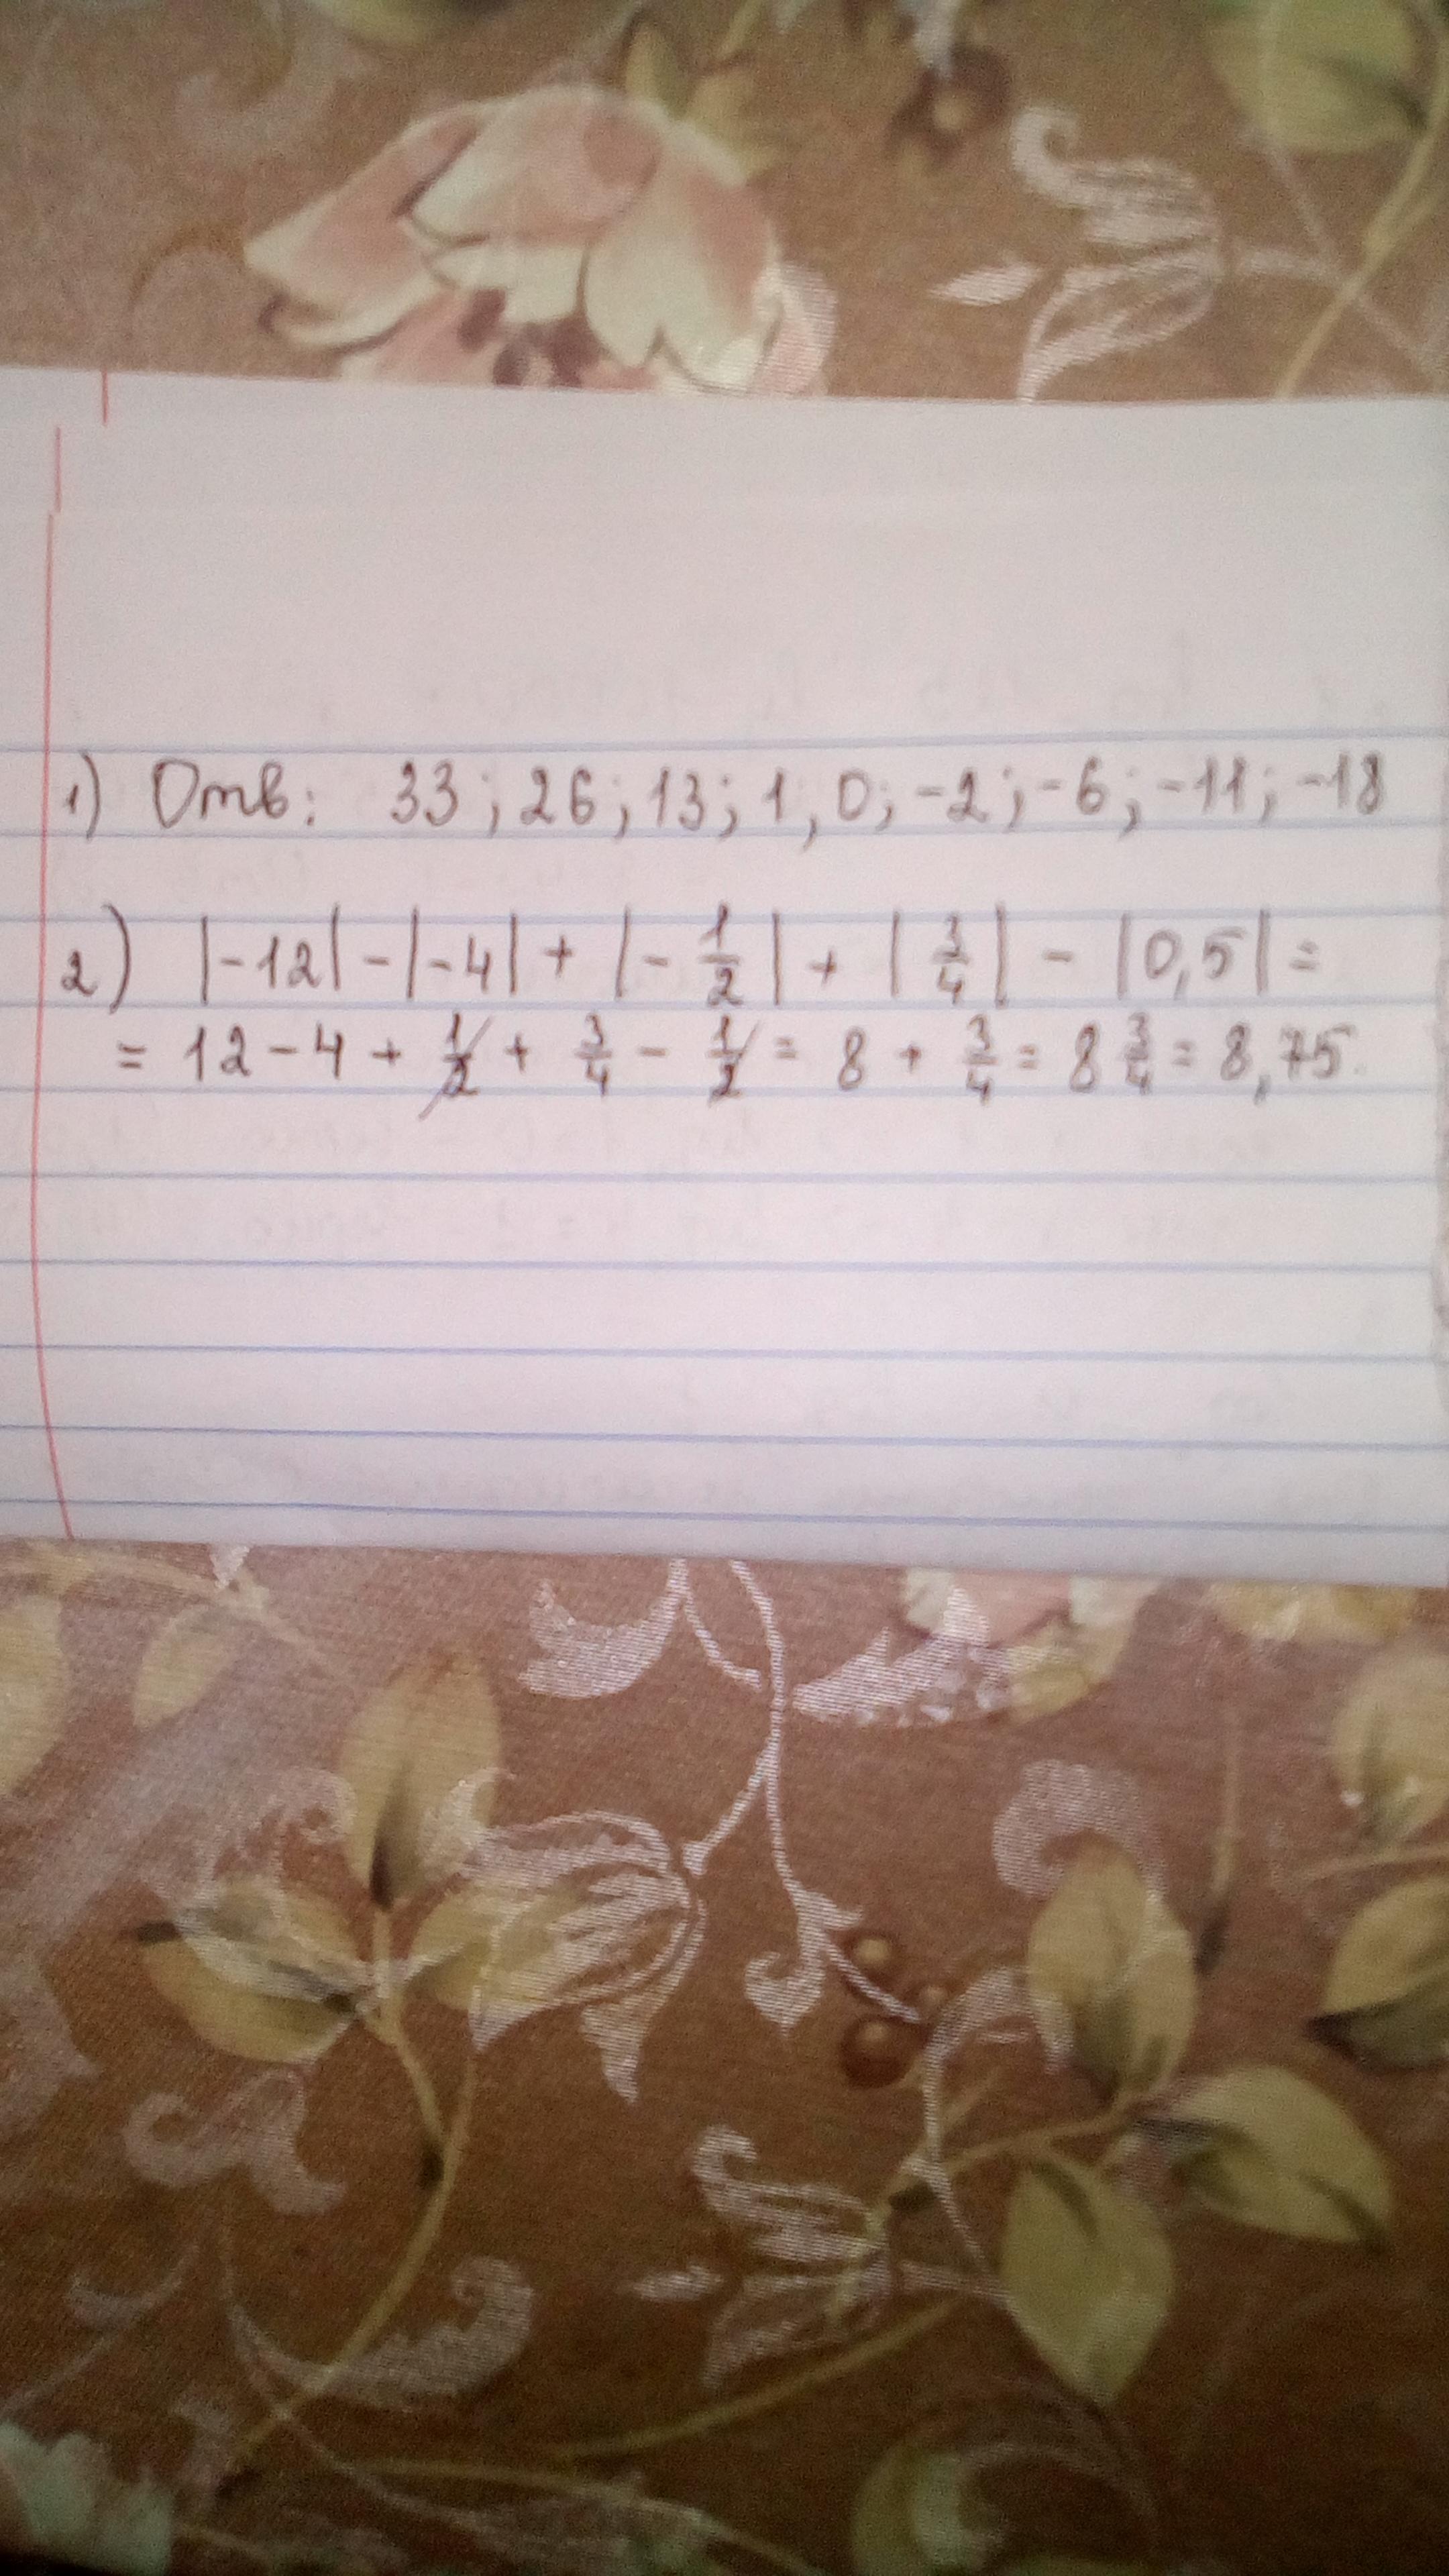 1) Отв: 33; 26; 13; 1, 0; -2; -6; -11; -18
2) |-12| - |-4| + |-1/2| + |3/4| - |0,5| =
= 12 - 4 + 1/2 + 3/4 - 1/2 = 8 + 3/4 = 8 3/4 = 8,75.